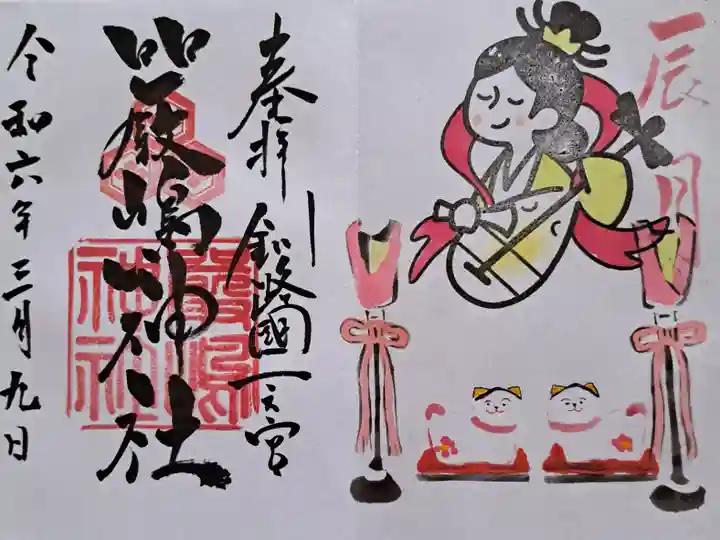 辰月
奉拝
釧路國一之宮
厳嶋神社
嚴嶋神社
令和六年三月九日